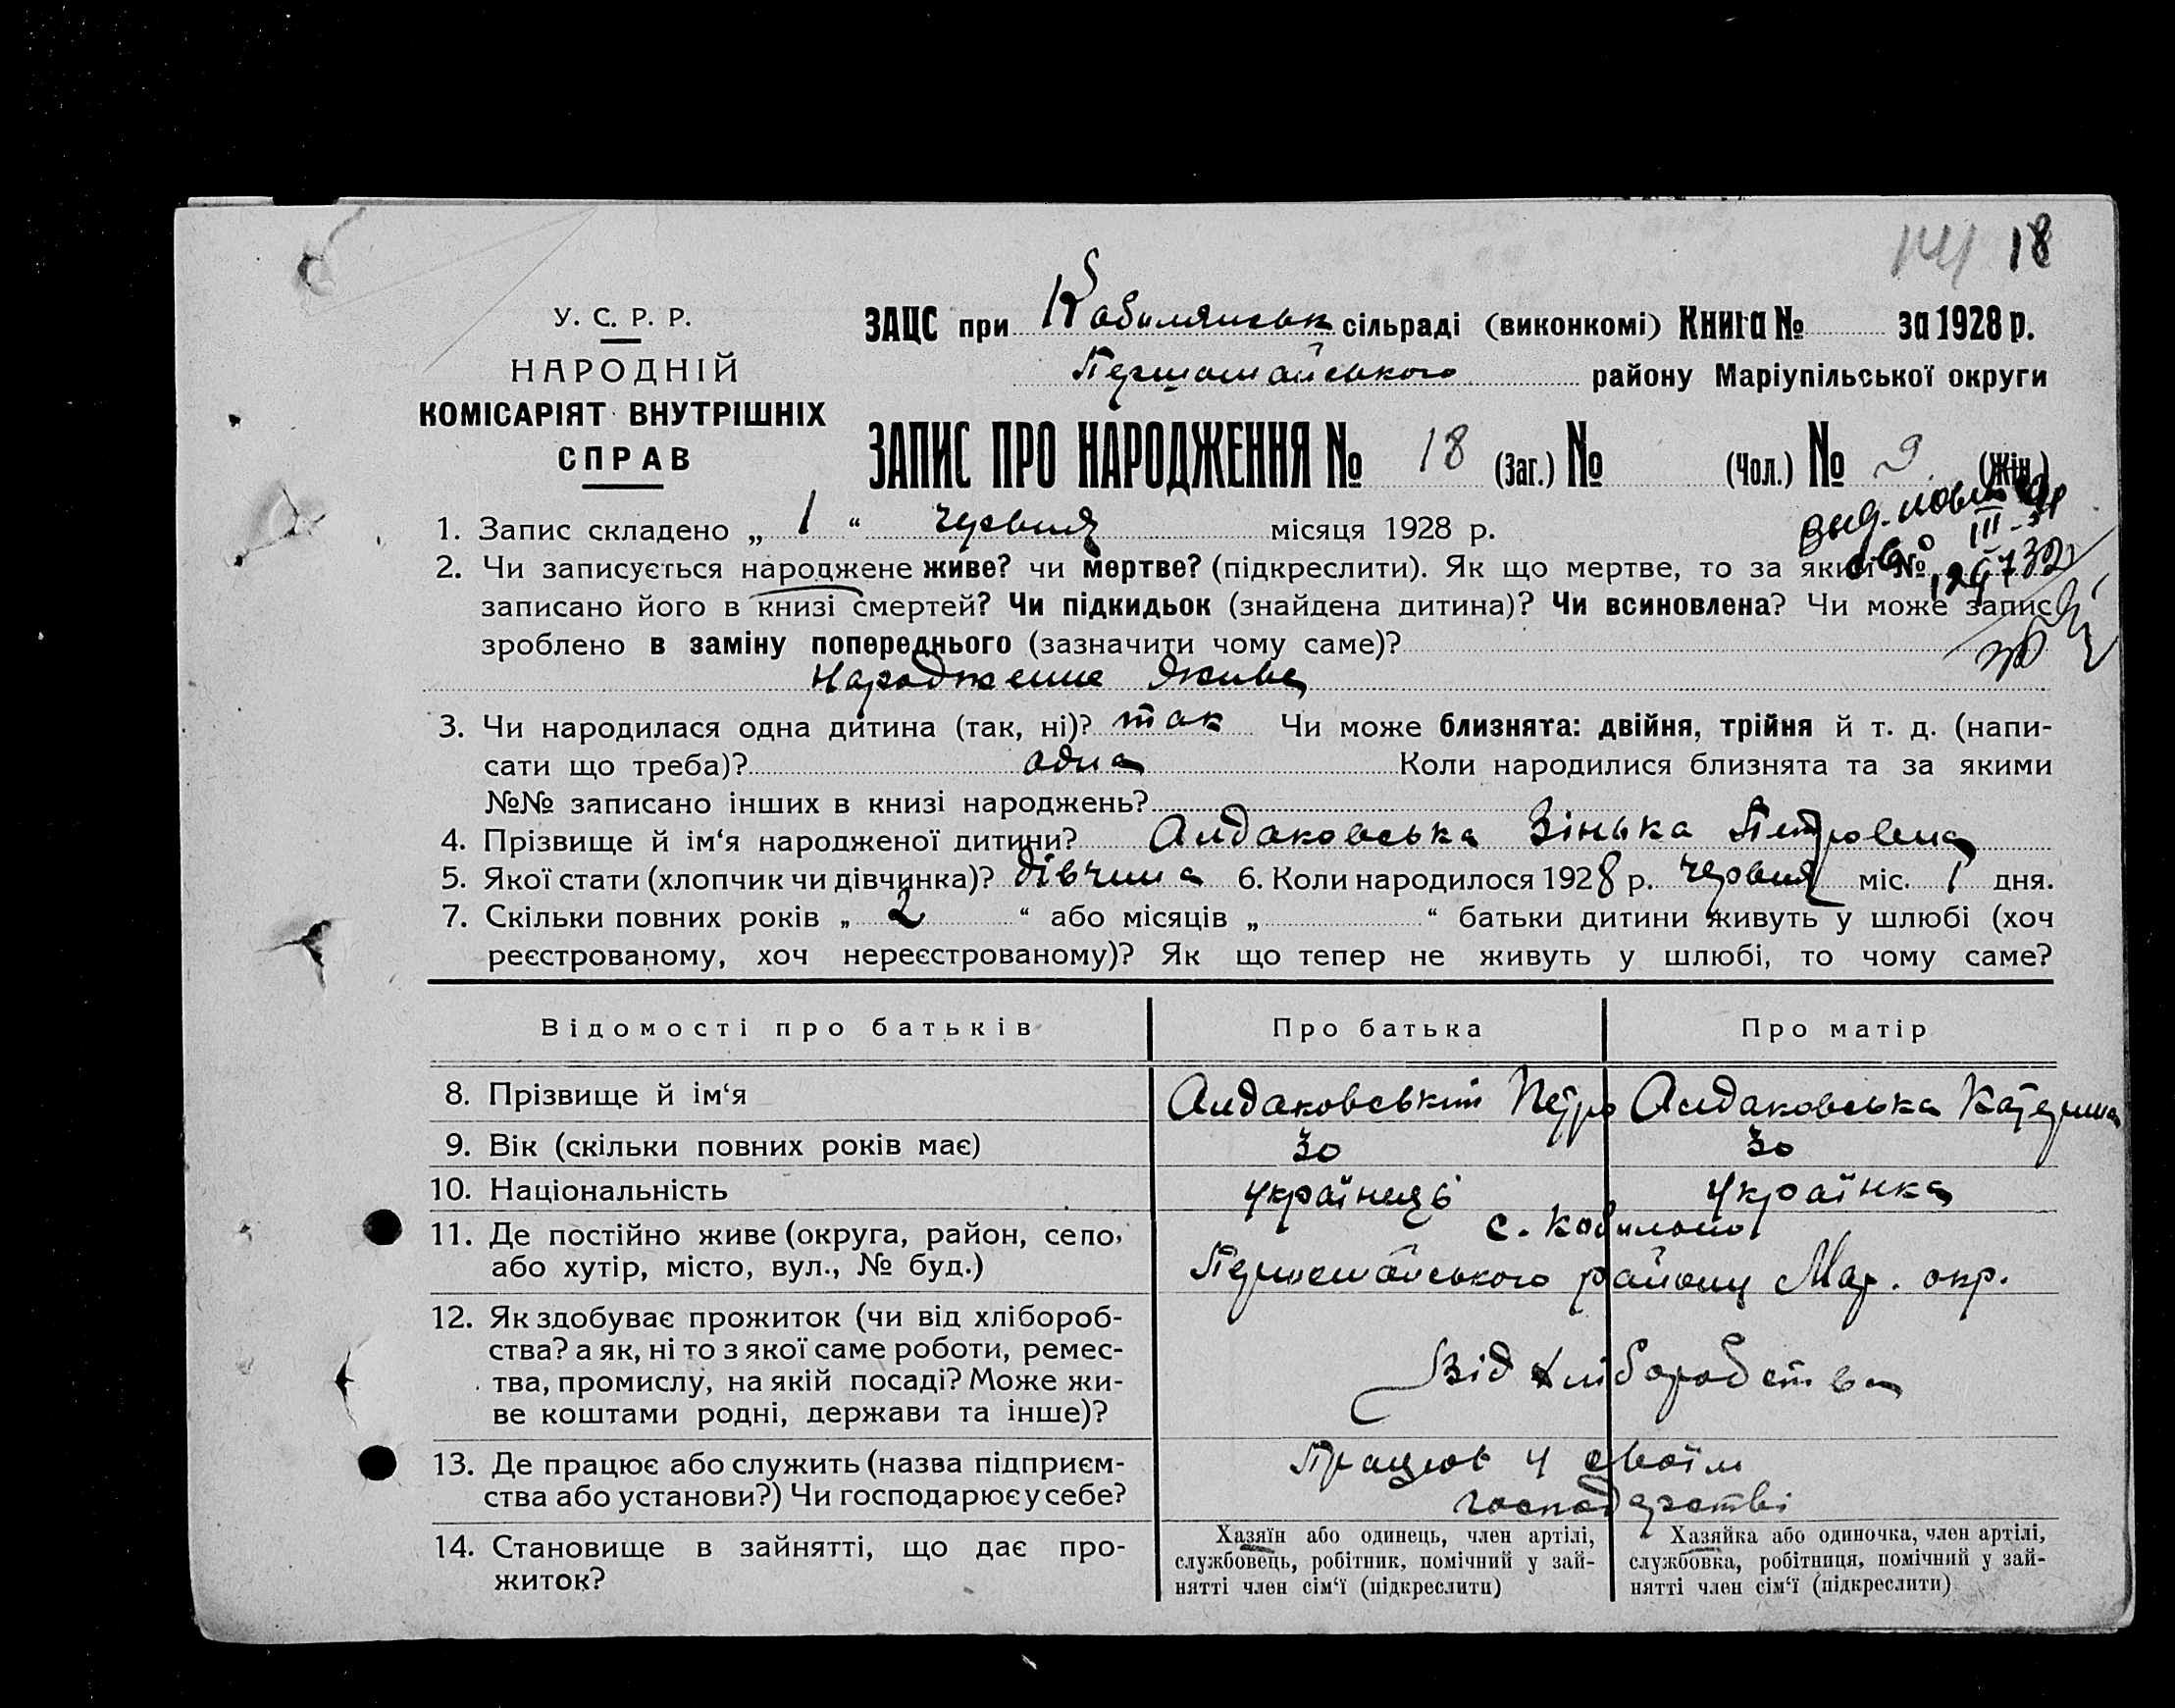 141 18
У. С. Р. Р.
НАРОДНІЙ
КОМІСАРІЯТ ВНУТРІШНІХ
СПРАВ
ЗАЦС при Кобилянськ сільраді (виконкомі) Книга № за 1928 р.
Першотравенського району Маріупільської округи
ЗАПИС ПРО НАРОДЖЕННЯ № 18 (Заг.) № (Чол.) № 9 (Жін.)
1. Запис складено „ 1 “ червня місяця 1928 р.
2. Чи записується народжене живе? чи мертве? (підкреслити). Як що мертве, то за яким №
записано його в книзі смертей? Чи підкидьок (знайдена дитина)? Чи всиновлена? Чи може запис
зроблено в заміну попереднього (зазначити чому саме)?
Народжене живе
3. Чи народилася одна дитина (так, ні)? так Чи може близнята: двійня, трійня й т. д. (напи-
сати що треба)? одна Коли народилися близнята та за якими
№№ записано інших в книзі народжень?
4. Прізвище й ім‘я народженої дитини? Алдаковська Зінька Петровна
5. Якої стати (хлопчик чи дівчинка)? дівчина 6. Коли народилося 1928 р. червня міс. 1 дня.
7. Скільки повних років „ 2 “ або місяців „ “ батьки дитини живуть у шлюбі (хоч
реєстрованому, хоч нереєстрованому)? Як що тепер не живуть у шлюбі, то чому саме?
Відомості про батьків Про батька Про матір
8. Прізвище й ім‘я Алдаковський Петро Алдаковська Катерина
9. Вік (скільки повних років має) 30 30
10. Національність українець українка
11. Де постійно живе (округа, район, село,
або хутір, місто, вул., № буд.)
с.
району Мар. окр.
12. Як здобуває прожиток (чи від хлібороб-
ства? а як, ні то з якої саме роботи, ремес-
тва, промислу, на якій посаді? Може жи-
ве коштами родні, держави та інше)?
Від хліборобства
13. Де працює або служить (назва підприєм-
ства або установи?) Чи господарює у себе?
Працює у своїм
господарстві
14. Становище в зайнятті, що дає про-
житок?
Хазяїн або одинець, член артілі,
службовець, робітник, помічний у зай-
нятті член сім‘ї (підкреслити)
Хазяйка або одиночка, член артілі,
службовка, робітниця, помічний у зай-
нятті член сім‘ї (підкреслити)